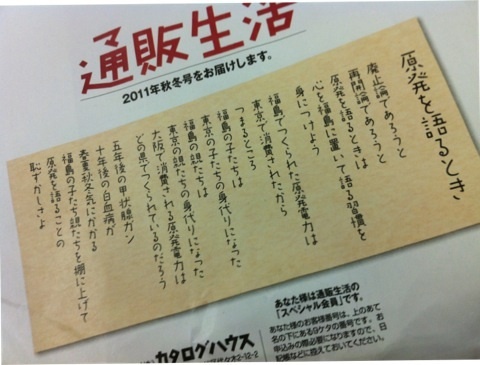 通販生活
2011年秋冬号をお届けします。
原発を語るとき
廃止論であろうと
再開論であろうと
原発を語るときは
心を福島に置いて語る習慣を
身につけよう
福島でつくられた原発電力は
東京で消費されたから
つまるところ
福島の子たちは
東京の子たちの身代りになった
福島の親たちは
東京の親たちの身代りになった
大阪で消費される原発電力は
どの県でつくられているのだろう
五年後の甲状腺ガン
十年後の白血病が
春夏秋冬気にかかる
福島の子たち親たちを棚に上げて
原発を語ることの
恥ずかしさよ
あなた様は通販生活の
「スペシャル会員」です。
あなた様のお客様番号は、上のあて
名の下にある9ケタの番号です。お
申込みの際必要になりますので、日
記帳などに控えておいてください。
カタログハウス
代々木2-12-2